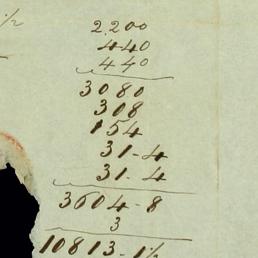 1/2
2,200
440
440
3080
308
154
31-4
31.4
3604-8
3
10813-1/2